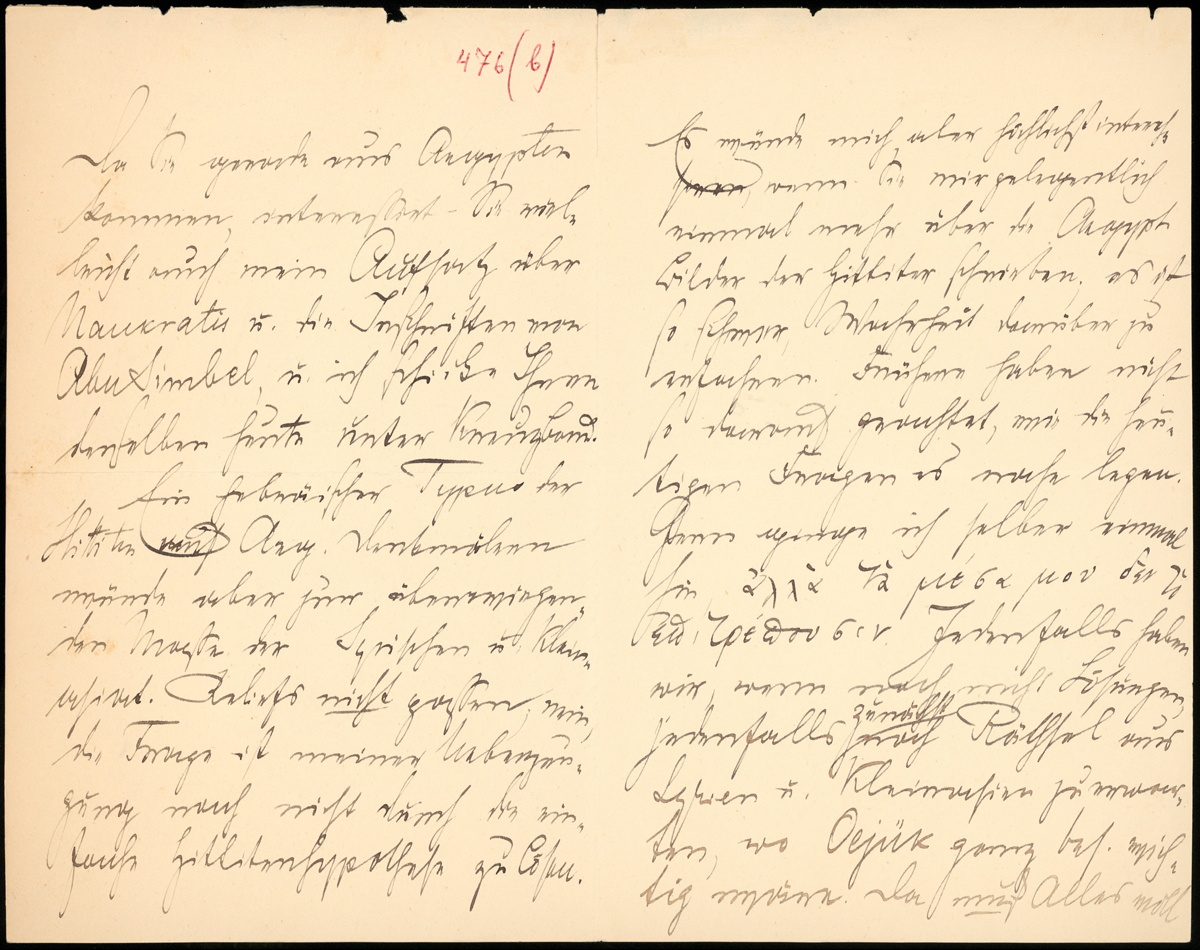 476 (b)
Da Sie gerade aus Aegypten
kommen, interessirt Sie viel-
leicht auch mein Aufsatz über
Naukratis u. die Inschriften von
Abu Simbel, u. ich schicke Ihnen
denselben heute unter Kreuzband.
Ein hebräischer Typus der
Hititen auf Aeg. Denkmälern
würde aber zur überwiegen-
den Masse der Syrischen u. Klein-
asiat. Reliefs nicht passen, nein,
die Frage ist meiner Ueberzeu-
gung nach nicht durch die ein-
fache Hittitenhypothese zu lösen.
Es würde mich aber höchlichst interes-
siren, wenn Sie mir gelegentlich
einmal mehr über die Aegypt
Bilder der Hittiter schrieben; es ist
so schwer, Wahrheit darüber zu
erfahren. Frühere haben nicht
so darauf geachtet, wie die heu-
tigen Fragen es nahe legen.
Gern ginge ich selber einmal
hin, ἀλλὰ τὰ μέσα μου δὲν τὸ
ἐπιτρέπουσιν. Jedenfalls haben
wir, wenn noch nicht Lösungen,
jedenfalls zunächst noch Räthsel aus
Syrien u. Kleinasien zu erwar-
ten, wo Oejük ganz bes. wich-
tig wäre. Da muß Alles